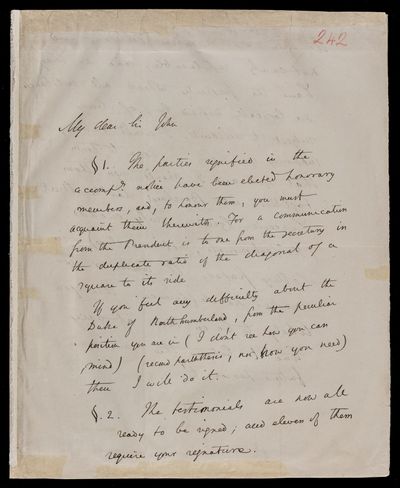 242
My dear Sir John
§1. The parties signified in the
accomp.g notice have been elected honorary
members, and, to honour them, you must
acquaint them therewith. For a communication
from the President is to one from the secretary in
the duplicate ratio of the diagonal of a
square to its side
If you feel any difficulty about the
Duke of Northumberland, from the peculiar
position you are in (I don't see how you can
mind) (second parenthesis, nor how you need)
then I will do it.
§.2. The testimonials are now all
ready to be signed; and eleven of them
require your signature.